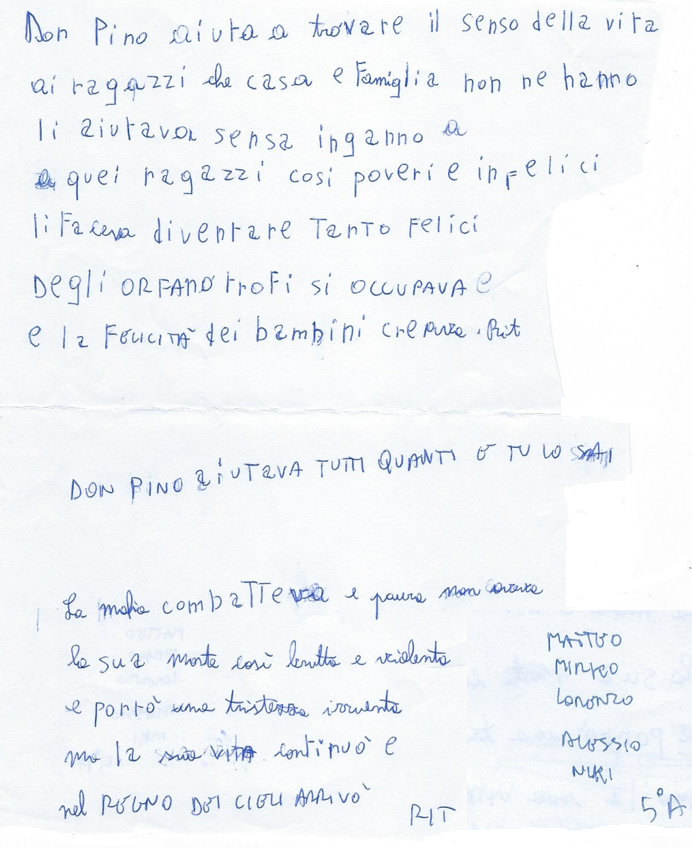 Don Pino aiuta a trovare il senso della vita
ai ragazzi che casa e Famiglia non ne hanno
li aiutava sensa inganno a
quei ragazzi così poveri e infelici
li Faceva diventare TanTO Felici
Degli ORFANOtroFi si OCCUPAVA e
e la FELICITÀ dei bambini creava. Rit
DON PINO aiUTAVA TUTTI QUANTI E TU LO SAI
La mafia combaTTeva e paura non aveva
la sua morte così brutta e violenta
e portò una tristezza irruenta
ma la sua VITA continuò e
nel REGNO DEI CIELI ARRIVÒ
RIT
MATTEO
MIRKO
LORENZO
ALESSIO
NIKI
5°A